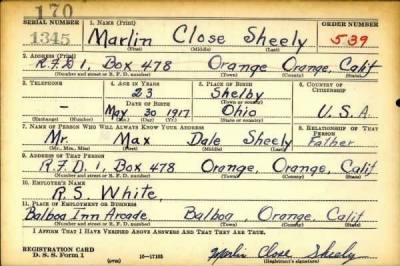 170
SERIAL NUMBER 1. NAME (Print) ORDER NUMBER
1345 Marlin Close Sheely 539
(First) (Middle) (Last)
2. ADDRESS (Print)
R.F.D 1, Box 478 Orange Orange, Calif
(Number and street or R. F. D. number) (Town) (County) (State)
3. TELEPHONE 4. AGE IN YEARS 5. PLACE OF BIRTH 6. COUNTRY OF CITIZENSHIP
23 Shelby
DATE OF BIRTH (Town or county)
— May 30 1917 Ohio U.S.A.
(Exchange) (No.) (Mo.) (Day) (Yr.) (State or country)
7. NAME OF PERSON WHO WILL ALWAYS KNOW YOUR ADDRESS 8. RELATIONSHIP OF THAT PERSON
Mr. Max Dale Sheely Father
(Mr., Mrs., Miss) (First) (Middle) (Last)
9. ADDRESS OF THAT PERSON
R.F.D 1, Box 478 Orange, Orange, Calif
(Number and street or R. F. D. number) (Town) (County) (State)
10. EMPLOYER'S NAME
R.S. White,
11. PLACE OF EMPLOYMENT OR BUSINESS
Balboa Inn Arcade, Balboa, Orange, Calif
(Number and street or R. F. D. number) (Town) (County) (State)
I AFFIRM THAT I HAVE VERIFIED ABOVE ANSWERS AND THAT THEY ARE TRUE.
REGISTRATION CARD
D. S. S. Form 1 16—17105 Marlin Close Sheely
(over) (Registrant's signature)